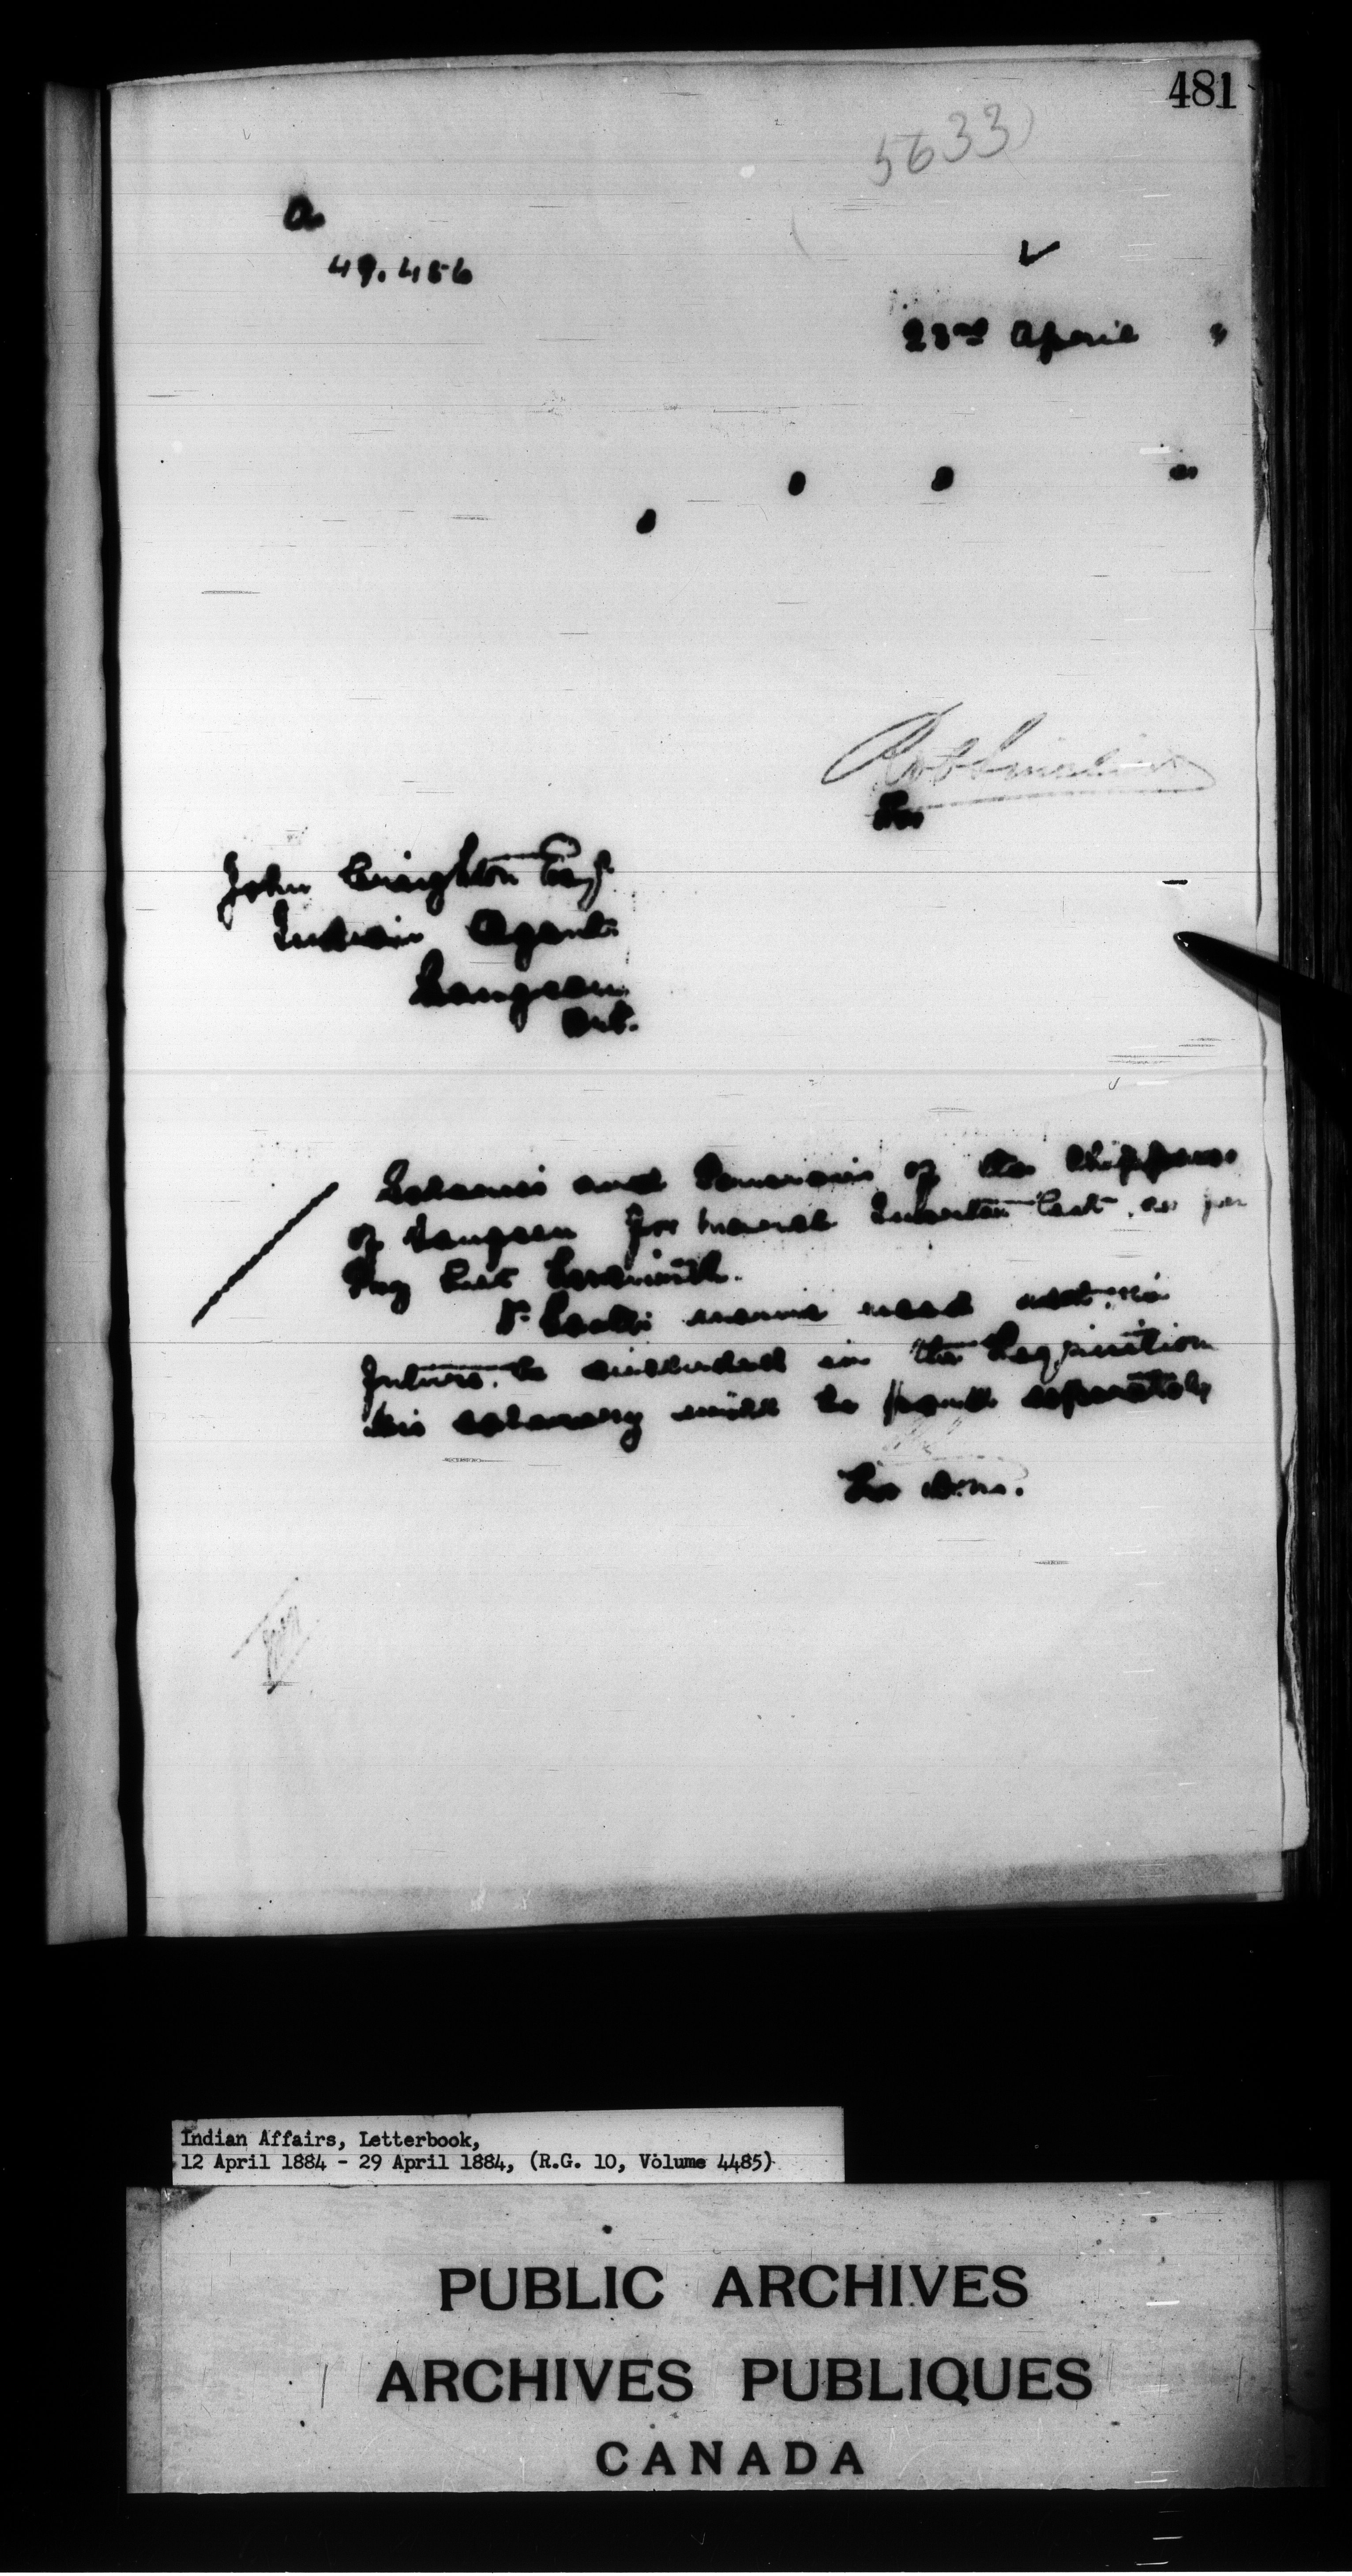 481
5633
a
49.456
✓
23rd April "
Rob Sinclair
For
John Creighton Esq.
Indian Agent
Saugeen
Ont.
Salaries and Pensions of the Chippewas
of Saugeen for March Quarter last, as per
Pay List herewith.
Dr Scott's name need not in
future be included in the Requisition
his salary will be paid separately
Indian Affairs, Letterbook,
12 April 1884 - 29 April 1884, (R.G. 10, Volume 4485)
PUBLIC ARCHIVES
ARCHIVES PUBLIQUES
CANADA